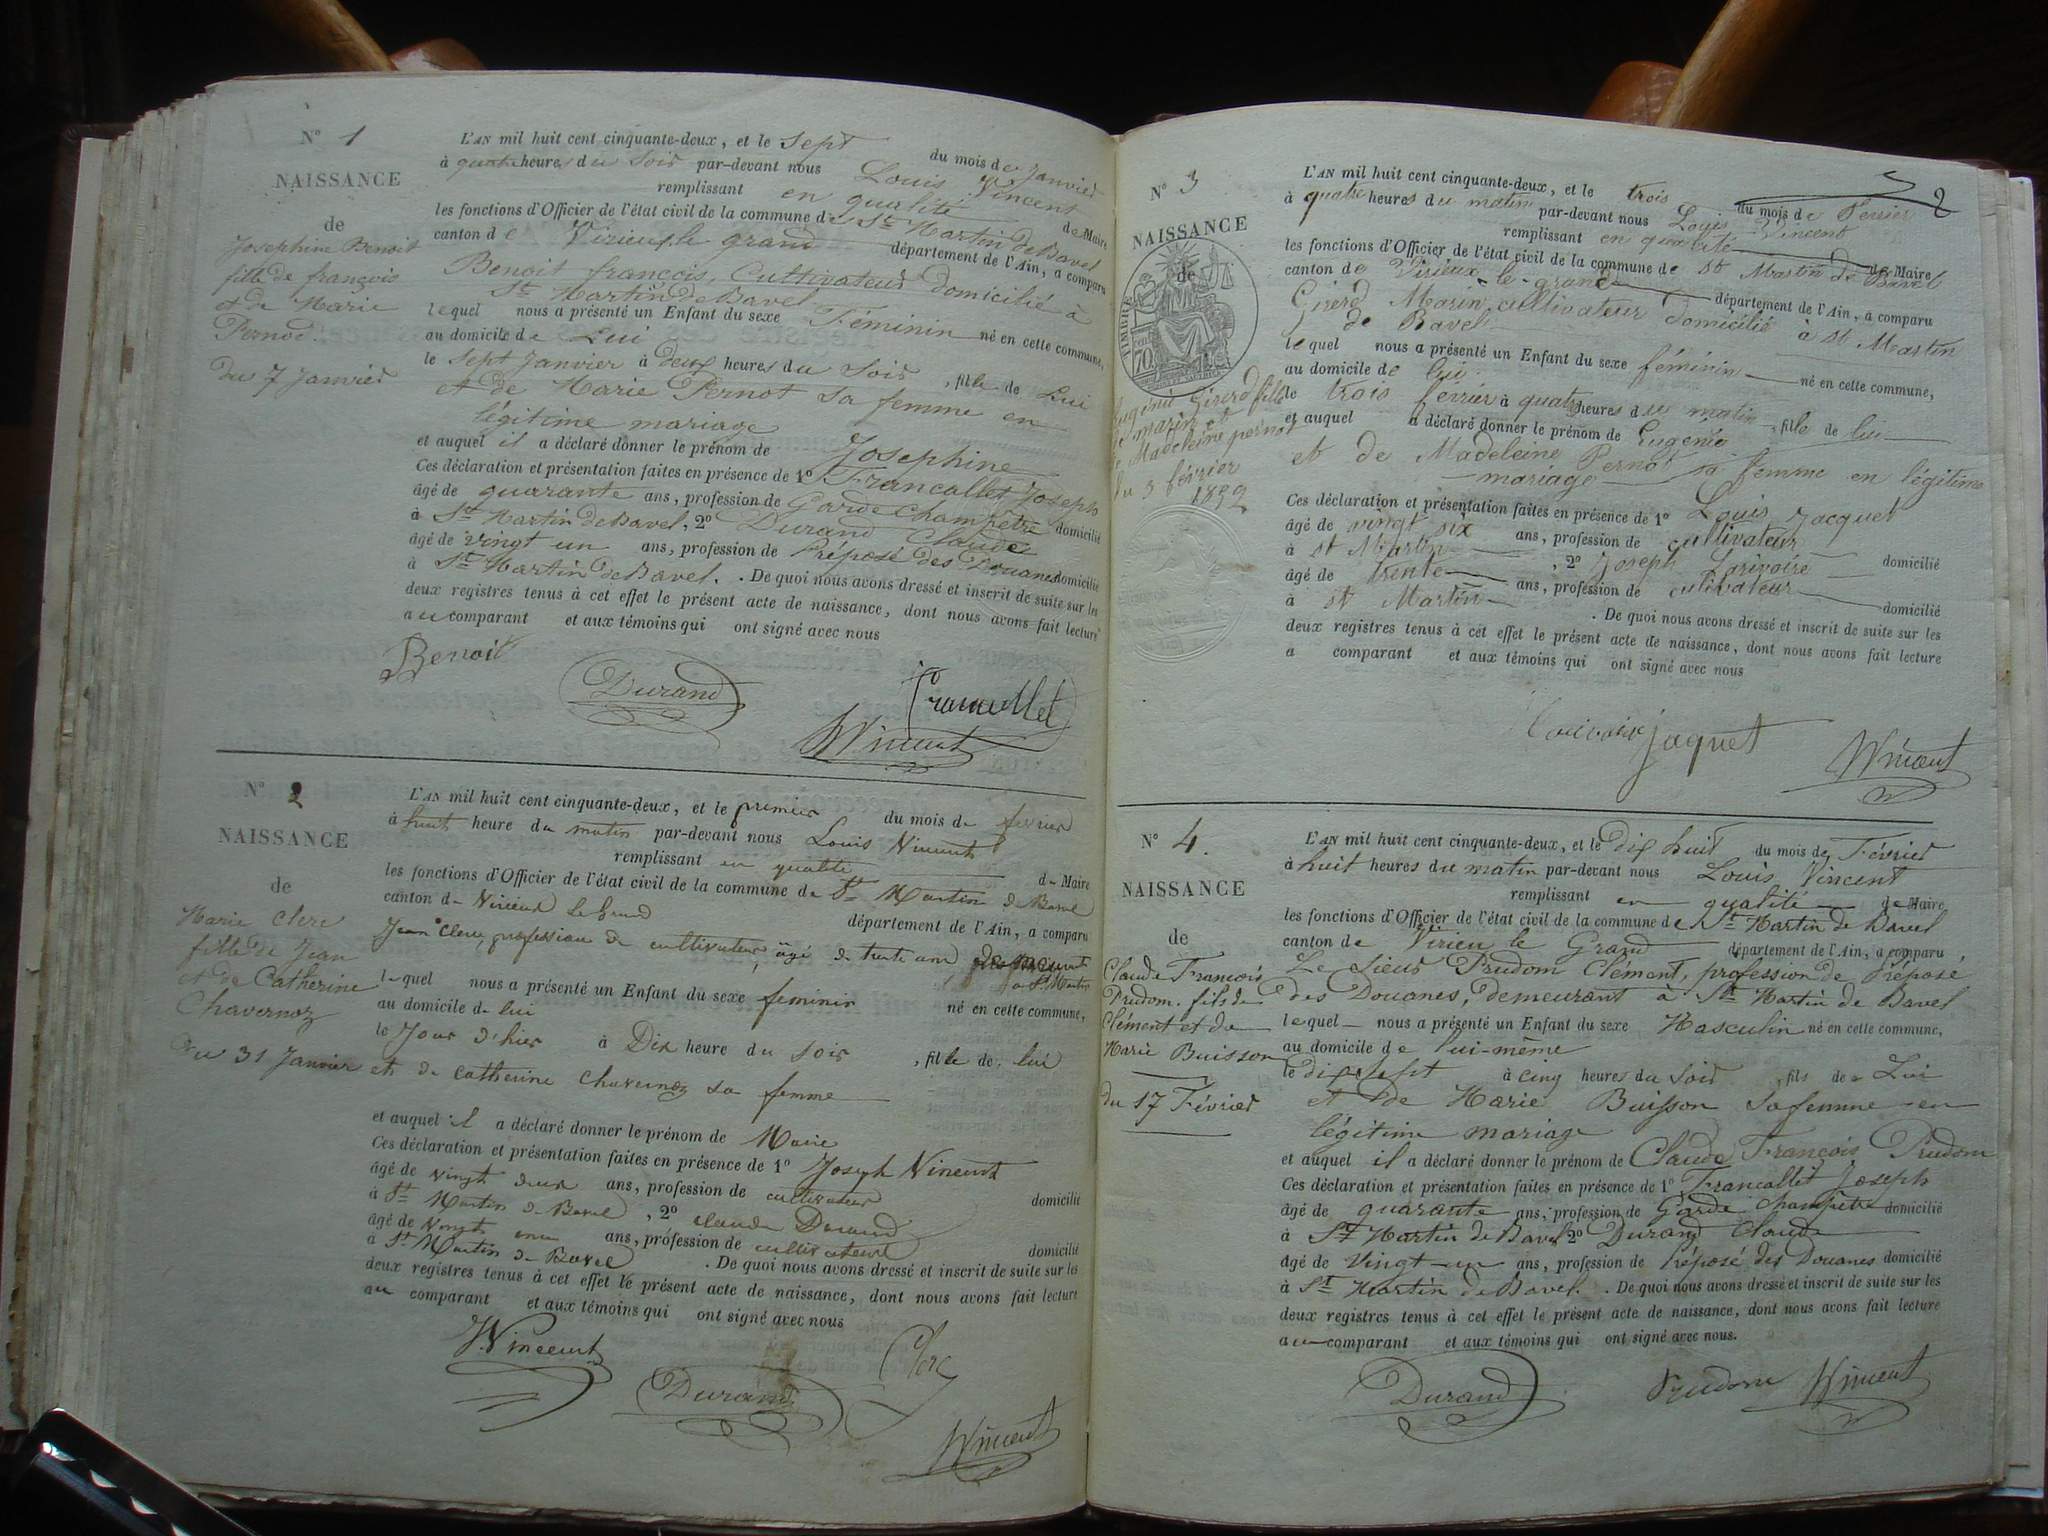 N° 1
NAISSANCE
de
Josephine Benoit
fille de françois
et de Marie
Pernod.
du 7 Janvier
L'AN mil huit cent cinquante-deux, et le sept du mois de Janvier
à quatre heures du soir par-devant nous Louis Vincent
remplissant en qualité de Maire
les fonctions d'Officier de l'état civil de la commune de St Martin de Bavel
canton de Virieu le grand département de l'Ain, a comparu
Benoit françois, Cultivateur domicilié à
St Martin de Bavel
lequel nous a présenté un Enfant du sexe Féminin né en cette commune,
au domicile de Lui
le sept Janvier à deux heures du soir, fille de Lui
et de Marie Pernot sa femme en
légitime mariage
et auquel il a déclaré donner le prénom de Josephine
Ces déclaration et présentation faites en présence de 1° Francallet Joseph
âgé de quarante ans, profession de Garde Champêtre domicilié
à St Martin de Bavel, 2° Durand Claude
âgé de vingt un ans, profession de Préposé des Douanes domicilié
à St Martin de Bavel. . De quoi nous avons dressé et inscrit de suite sur les
deux registres tenus à cet effet le présent acte de naissance, dont nous avons fait lecture
au comparant et aux témoins qui ont signé avec nous
Benoit
Durand
Francallet
Vincent
N° 2
NAISSANCE
de
Marie Clerc
fille de Jean
et de Catherine
Chavernoz
du 31 Janvier
L'AN mil huit cent cinquante-deux, et le premier du mois de fevrier
à huit heure du matin par-devant nous Louis Vincent
remplissant en qualité de Maire
les fonctions d'Officier de l'état civil de la commune de St Martin de Bavel
canton de Virieux le Grand département de l'Ain, a comparu
Jean Clerc, profession de cultivateur, âgé de trente ans
à St Martin
lequel nous a présenté un Enfant du sexe feminin né en cette commune,
au domicile de lui
le Jour d'hier à Dix heure du soir, fille de lui
et de Catherine Chavernoz sa femme
et auquel il a déclaré donner le prénom de Marie
Ces déclaration et présentation faites en présence de 1° Joseph Vincent
âgé de vingt deux ans, profession de cultivateur domicilié
à St Martin de Bavel, 2° claude Durand
âgé de Vingt un ans, profession de cultivateur domicilié
à St Martin de Bavel . De quoi nous avons dressé et inscrit de suite sur les
deux registres tenus à cet effet le présent acte de naissance, dont nous avons fait lecture
au comparant et aux témoins qui ont signé avec nous
J. Vincent
Clerc
Durand
Vincent
2
N° 3
NAISSANCE
de
TIMBRE
70
Eugénie Girerd fille
de marin et
de Madeleine pernot
du 3 février
1852
L'AN mil huit cent cinquante-deux, et le trois du mois de Fevrier
à quatre heures du matin par-devant nous Louis Vincent
remplissant en qualité de Maire
les fonctions d'Officier de l'état civil de la commune de St Martin de Bavel
canton de Virieux-le-grand département de l'Ain, a comparu
Girerd Marin, cultivateur domicilié à St Martin
de Bavel
lequel nous a présenté un Enfant du sexe féminin né en cette commune,
au domicile de lui
le trois février à quatre heures du matin, fille de lui
et auquel a déclaré donner le prénom de Eugénie
et de Madeleine Pernot sa femme en légitime
mariage
Ces déclaration et présentation faites en présence de 1° Louis Jacquet
âgé de vingt six ans, profession de cultivateur
à St Martin, 2° Joseph Larivoire domicilié
âgé de trente ans, profession de cultivateur
à St Martin domicilié
. De quoi nous avons dressé et inscrit de suite sur les
deux registres tenus à cet effet le présent acte de naissance, dont nous avons fait lecture
a comparant et aux témoins qui ont signé avec nous
jaquet
Vincent
N° 4.
NAISSANCE
de
Claude François
Prudom. fils de
Clément et de
Marie Buisson
du 17 Février
L'AN mil huit cent cinquante-deux, et le dix huit du mois de Février
à huit heures du matin par-devant nous Louis Vincent
remplissant en qualité de Maire
les fonctions d'Officier de l'état civil de la commune de St Martin de Bavel
canton de Virieu le Grand département de l'Ain, a comparu
Le Sieur Prudom Clément, profession de Préposé
des Douanes, demeurant à St Martin de Bavel
lequel nous a présenté un Enfant du sexe Masculin né en cette commune,
au domicile de lui-même
le dix sept à cinq heures du soir, fils de Lui
et de Marie Buisson sa femme en
légitime mariage
et auquel il a déclaré donner le prénom de Claude François Prudom
Ces déclaration et présentation faites en présence de 1° Francallet Joseph
âgé de quarante ans, profession de Garde Champêtre domicilié
à St Martin de Bavel 2° Durand Claude
âgé de Vingt-un ans, profession de Préposé des Douanes domicilié
à St Martin de Bavel. . De quoi nous avons dressé et inscrit de suite sur les
deux registres tenus à cet effet le présent acte de naissance, dont nous avons fait lecture
au comparant et aux témoins qui ont signé avec nous.
Durand
Prudom
Vincent